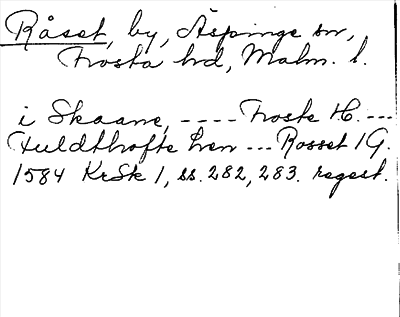 Råset, by, Äspinge sn,
Frosta hd, Malm. l.
i Skaane, ---- Froste H. ---
Huldthofte Len --- Rosset 1 G.
1584 KrSk 1, ss. 282, 283. regest.